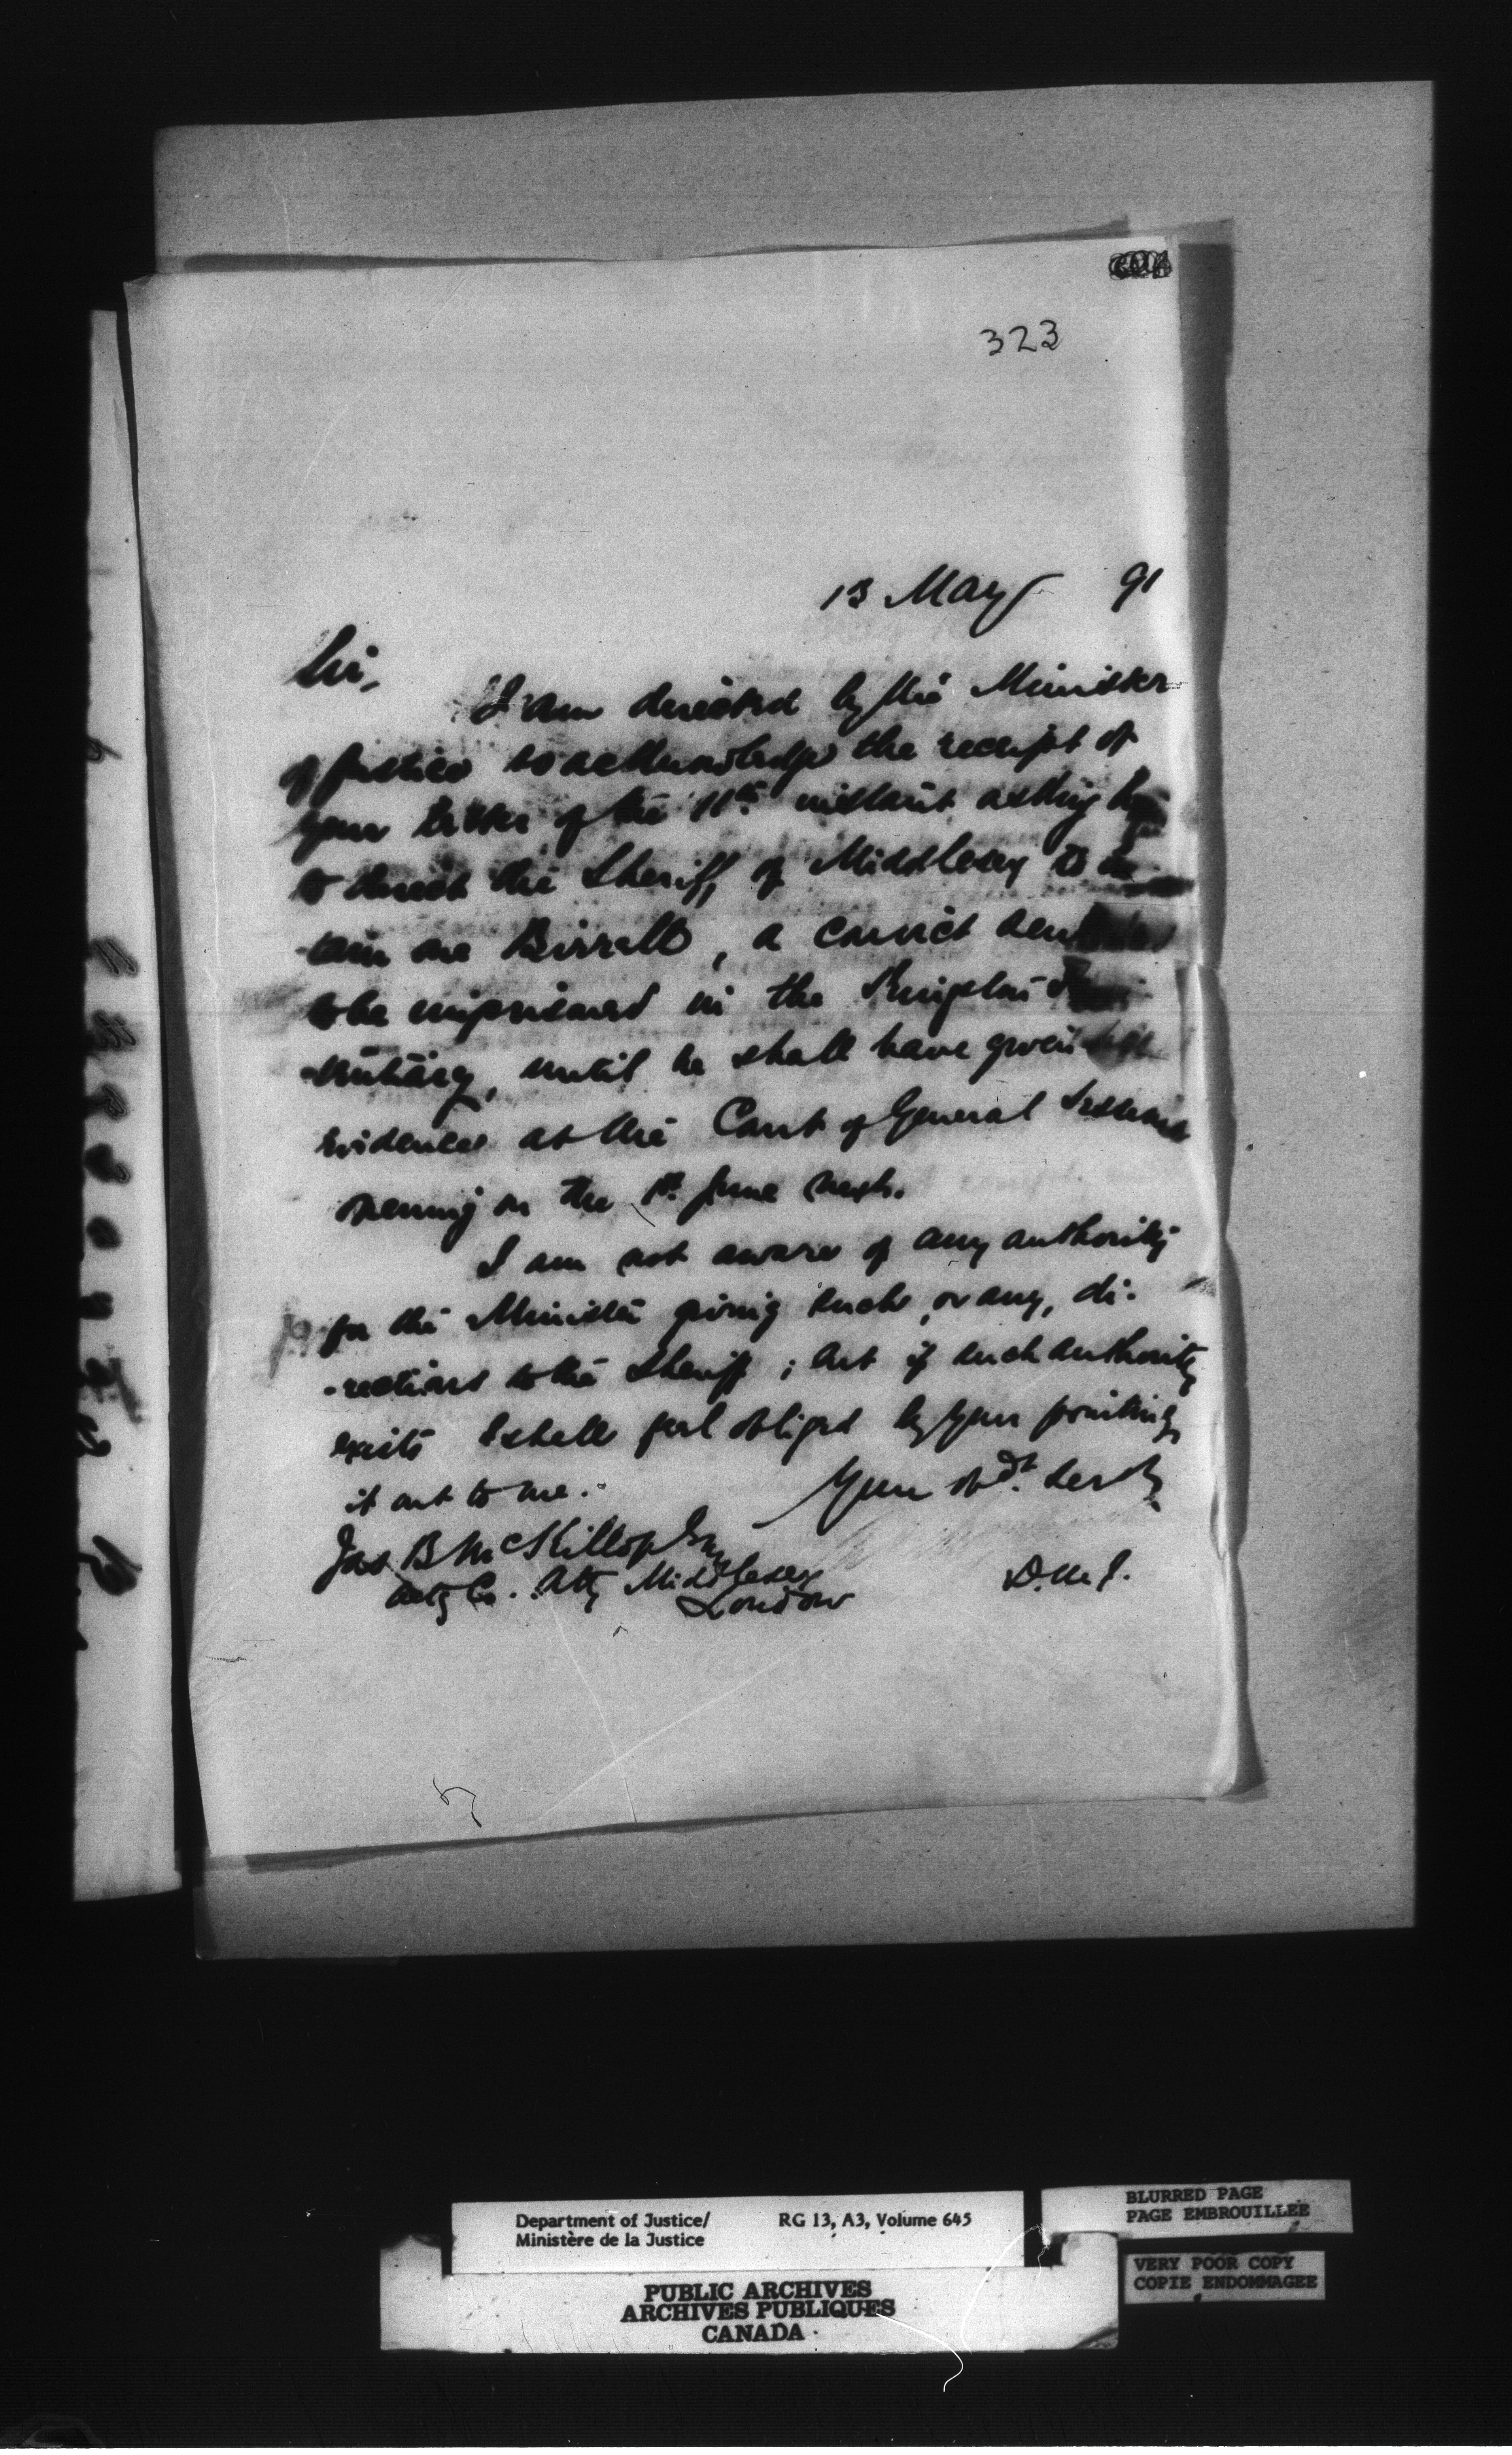 323
13 May 91
Sir,
I am directed by the Minister
of Justice to acknowledge the receipt of
your letter of the 11th instant asking
to direct the Sheriff of Middlesex to
-tain one Birrell, a convict
to be imprisoned in the Kingston
-tentiary, until he shall have given
evidence at the Court of General Sessions
opening on the 1st June next.
I am not aware of any authority
for the Minister giving such, or any, di-
-rections to the Sheriff; but if such authority
exists I shall feel obliged by your pointing
it out to me.
Your obdt. Servt.
Jas B McKillop Esq
Actg Co. Atty Middlesex
London
D.M.J.
Department of Justice/ RG 13, A3, Volume 645
Ministère de la Justice
BLURRED PAGE
PAGE EMBROUILLEE
VERY POOR COPY
COPIE ENDOMMAGEE
PUBLIC ARCHIVES
ARCHIVES PUBLIQUES
CANADA